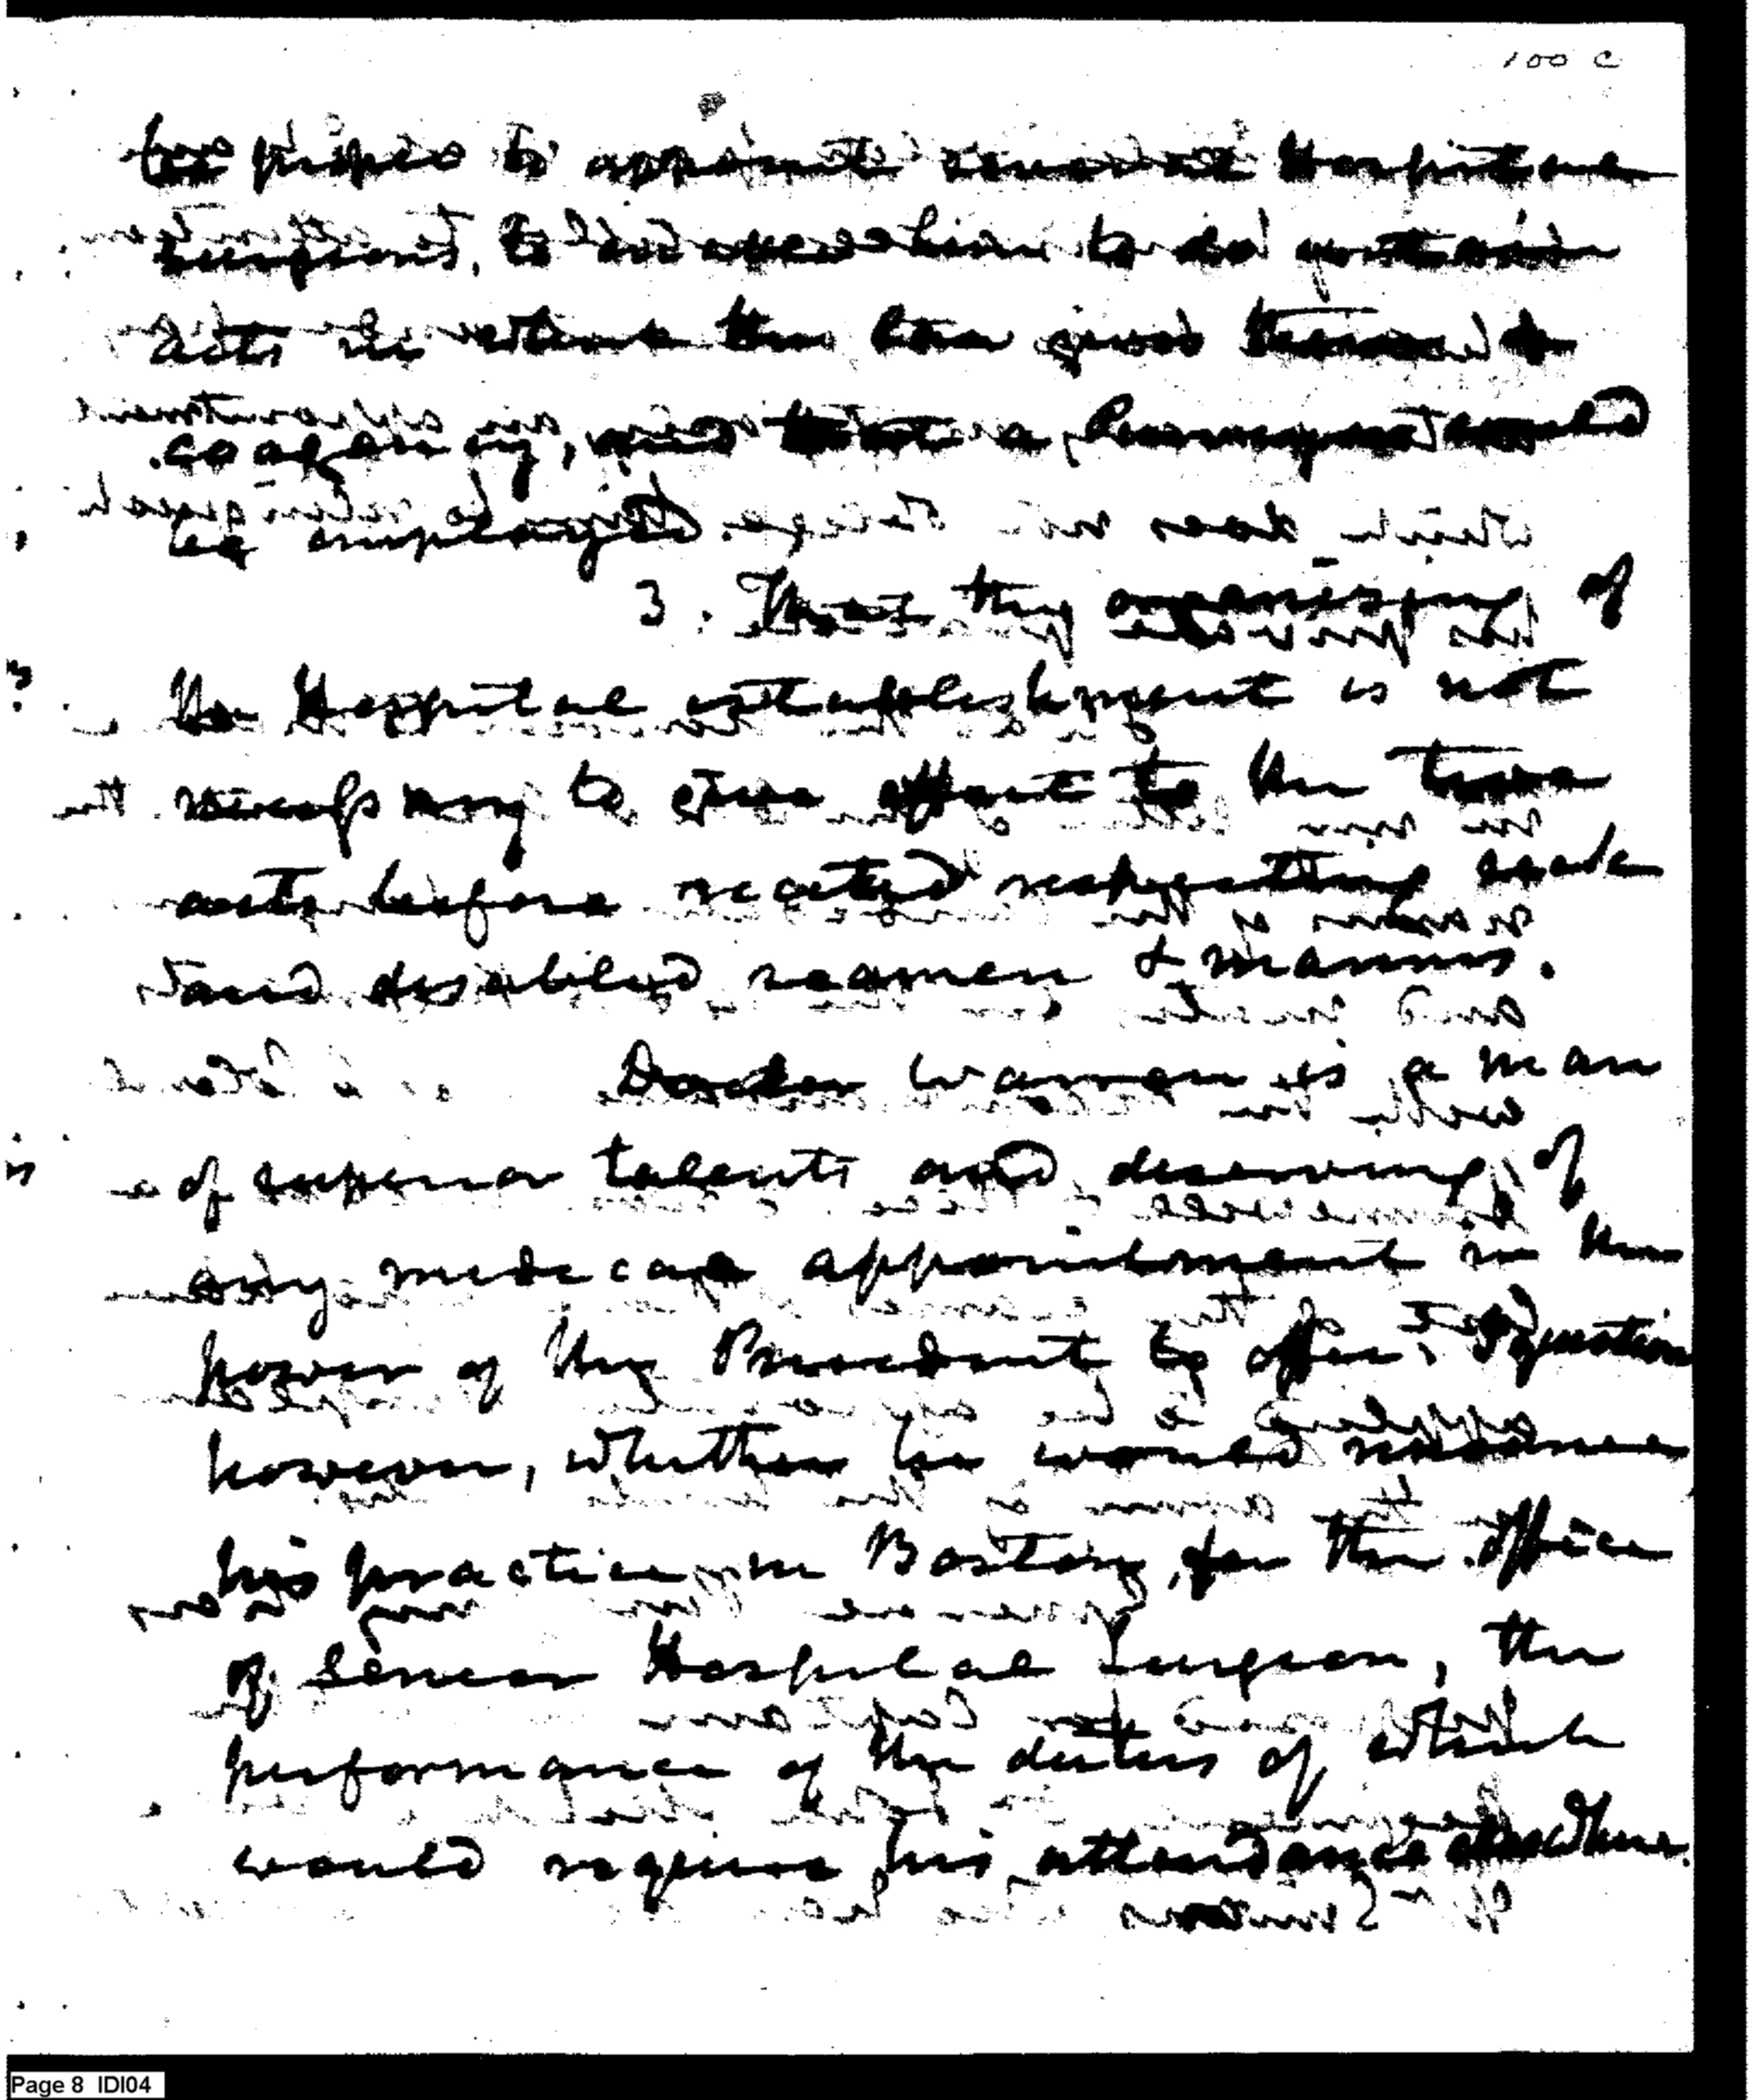 100 C
be proper to appoint Hospital
Surgeons, to him to do certain
acts in which the law gives them
co agency, and that a could
be employed.
3. That the organizing of
the Hospital establishment is not
necessary to give effect to the two
acts before recited respecting sick
and disabled seamen & marines.
Doctor Warren is a man
of superior talents and deserving of
any medical appointment in the
power of the President to offer. I question
however, whether he would renounce
his practice in Boston, for the office
of Senior Hospital Surgeon, the
performance of the duties of which
would require his attendance elsewhere.
Page 8 IDI04